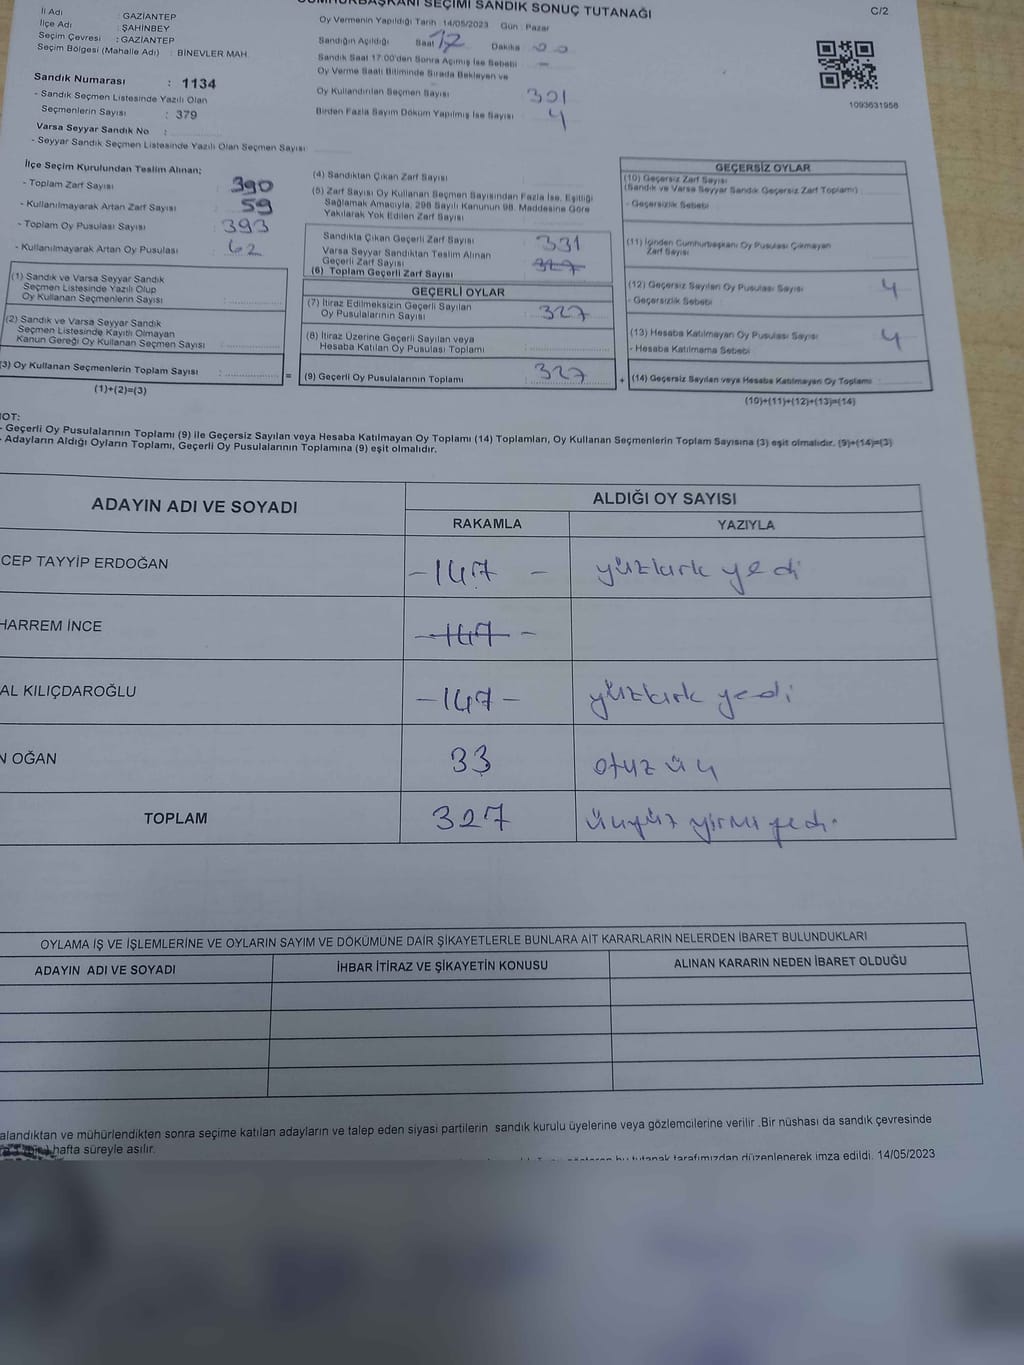 SEÇİMİ SANDIK SONUÇ TUTANAĞI
C/2
İl Adı : GAZİANTEP
İlçe Adı : ŞAHİNBEY
Seçim Çevresi : GAZİANTEP
Seçim Bölgesi (Mahalle Adı) : BİNEVLER MAH.
Sandık Numarası : 1134
- Sandık Seçmen Listesinde Yazılı Olan
Seçmenlerin Sayısı : 379
Varsa Seyyar Sandık No :
- Seyyar Sandık Seçmen Listesinde Yazılı Olan Seçmen Sayısı:
Oy Vermenin Yapıldığı Tarih : 14/05/2023 Gün : Pazar
Sandığın Açıldığı Saat 17 Dakika 00
Sandık Saat 17:00'den Sonra Açımış İse Sebebi : -
Oy Verme Saati Bitiminde Sırada Bekleyen ve
Oy Kullandırılan Seçmen Sayısı 301
Birden Fazla Sayım Döküm Yapılmış İse Sayısı : 4
1093631956
İlçe Seçim Kurulundan Teslim Alınan;
- Toplam Zarf Sayısı : 390
- Kullanılmayarak Artan Zarf Sayısı : 59
- Toplam Oy Pusulası Sayısı : 393
- Kullanılmayarak Artan Oy Pusulası : 62
(1) Sandık ve Varsa Seyyar Sandık
Seçmen Listesinde Yazılı Olup
Oy Kullanan Seçmenlerin Sayısı :
(2) Sandık ve Varsa Seyyar Sandık
Seçmen Listesinde Kayıtlı Olmayan
Kanun Gereği Oy Kullanan Seçmen Sayısı :
(3) Oy Kullanan Seçmenlerin Toplam Sayısı :
(1)+(2)=(3)
(4) Sandıktan Çıkan Zarf Sayısı :
(5) Zarf Sayısı Oy Kullanan Seçmen Sayısından Fazla İse, Eşitliği
Sağlamak Amacıyla, 298 Sayılı Kanunun 98. Maddesine Göre
Yakılarak Yok Edilen Zarf Sayısı :
Sandıkta Çıkan Geçerli Zarf Sayısı : 331
Varsa Seyyar Sandıktan Teslim Alınan
Geçerli Zarf Sayısı : 327
(6) Toplam Geçerli Zarf Sayısı :
GEÇERLİ OYLAR
(7) İtiraz Edilmeksizin Geçerli Sayılan
Oy Pusulalarının Sayısı : 327
(8) İtiraz Üzerine Geçerli Sayılan veya
Hesaba Katılan Oy Pusulası Toplamı :
= (9) Geçerli Oy Pusulalarının Toplamı : 327
GEÇERSİZ OYLAR
(10) Geçersiz Zarf Sayısı
(Sandık ve Varsa Seyyar Sandık Geçersiz Zarf Toplamı) :
- Geçersizlik Sebebi :
(11) İçinden Cumhurbaşkanı Oy Pusulası Çıkmayan
Zarf Sayısı :
(12) Geçersiz Sayılan Oy Pusulası Sayısı : 4
- Geçersizlik Sebebi :
(13) Hesaba Katılmayan Oy Pusulası Sayısı : 4
- Hesaba Katılmama Sebebi :
+ (14) Geçersiz Sayılan veya Hesaba Katılmayan Oy Toplamı :
(10)+(11)+(12)+(13)=(14)
NOT:
- Geçerli Oy Pusulalarının Toplamı (9) ile Geçersiz Sayılan veya Hesaba Katılmayan Oy Toplamı (14) Toplamları, Oy Kullanan Seçmenlerin Toplam Sayısına (3) eşit olmalıdır. (9)+(14)=(3)
- Adayların Aldığı Oyların Toplamı, Geçerli Oy Pusulalarının Toplamına (9) eşit olmalıdır.
ADAYIN ADI VE SOYADI
ALDIĞI OY SAYISI
RAKAMLA YAZIYLA
CEP TAYYİP ERDOĞAN -147- yüzkırk yedi
HARREM İNCE -147-
AL KILIÇDAROĞLU -147- yüzkırk yedi
N OĞAN 33 otuz üç
TOPLAM 327 üçyüz yirmi yedi
OYLAMA İŞ VE İŞLEMLERİNE VE OYLARIN SAYIM VE DÖKÜMÜNE DAİR ŞİKAYETLERLE BUNLARA AİT KARARLARIN NELERDEN İBARET BULUNDUKLARI
ADAYIN ADI VE SOYADI İHBAR İTİRAZ VE ŞİKAYETİN KONUSU ALINAN KARARIN NEDEN İBARET OLDUĞU
alandıktan ve mühürlendikten sonra seçime katılan adayların ve talep eden siyasi partilerin sandık kurulu üyelerine veya gözlemcilerine verilir .Bir nüshası da sandık çevresinde
hafta süreyle asılır.
bu tutanak tarafımızdan düzenlenerek imza edildi. 14/05/2023